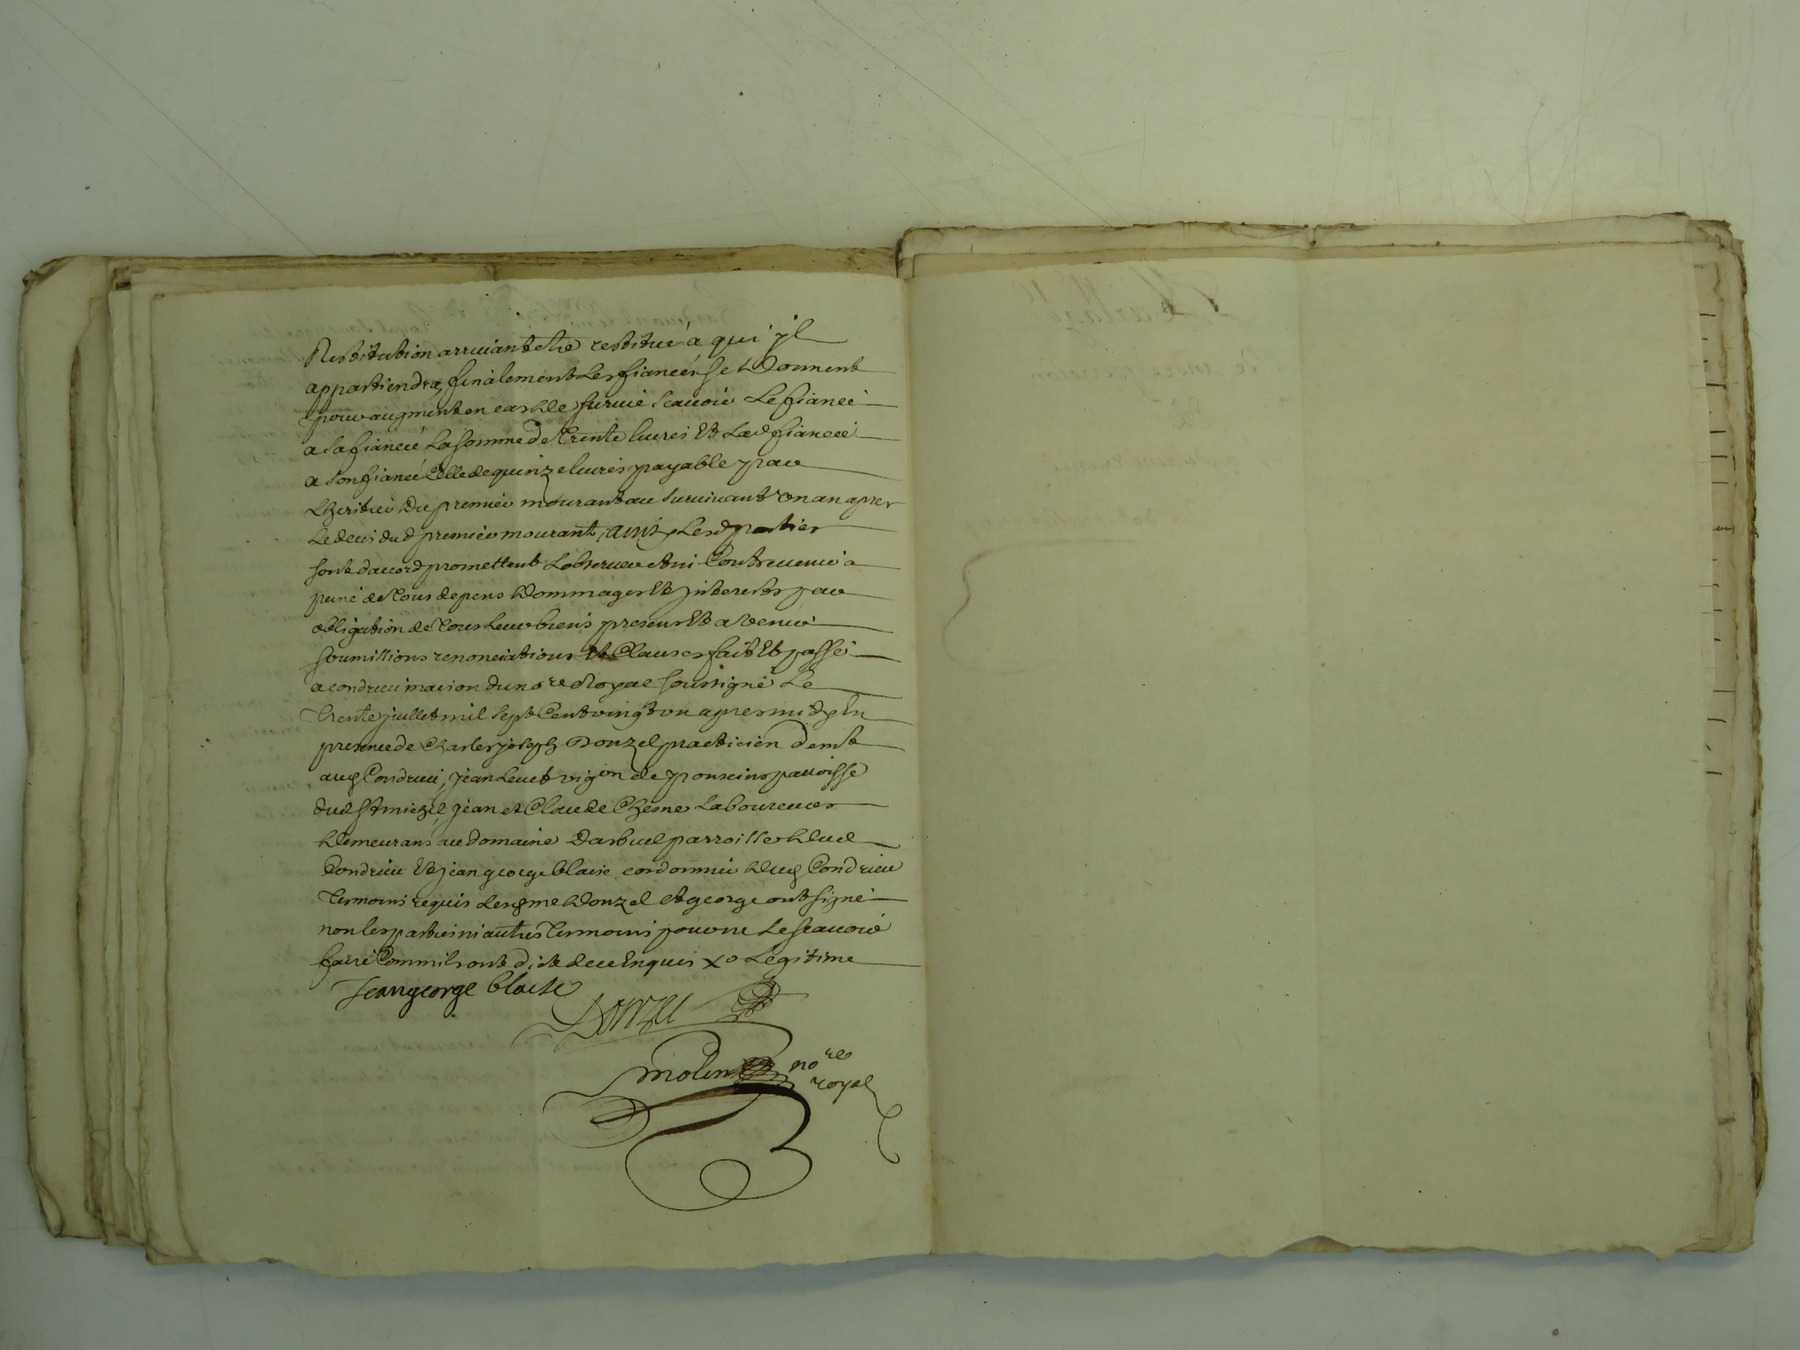 Restitution arrivant etre restitué a qui jl
appartiendra, finalement les fiancés se donnent
pour augment en cas de survie scavoir Le fiancé
a sa fiancée La somme de Trente livres Et Lad fiancée
a son fiancé Celle de quinze livres payable par
L'heritier du premier mourant au survivant un an apres
Le deces dud premier mourant, ainsi Lesd parties
sont d'accord promettent Lobserver et ni Contrevenir a
peine de Tous depens Dommages Et jnterests par
obligation de Tous leurs biens presens Et a venir
soumissions renonciations Et Clauses fait Et passé
a condrieu maison du nore Royal soussigné Le
Trente juillet mil sept Cent vingt un apres midy En
presence de Charles joseph Donzel practicien demt
aud Condrieu, jean vigon de parroisse
dud St michel jean et Claude Chesne Laboureurs
Demeurans au domaine Darbuel parroisse Dud
Condrieu Et jean george blaise cordonnier Dud Condrieu
Temoins requis Led me Donzel et george ont signé
non les parties ni autres Temoins pour ne Le scavoir
faire Comme ils ont dit de ce Enquis Legitime
Jean george blaise
Donzel
molin nore
royal